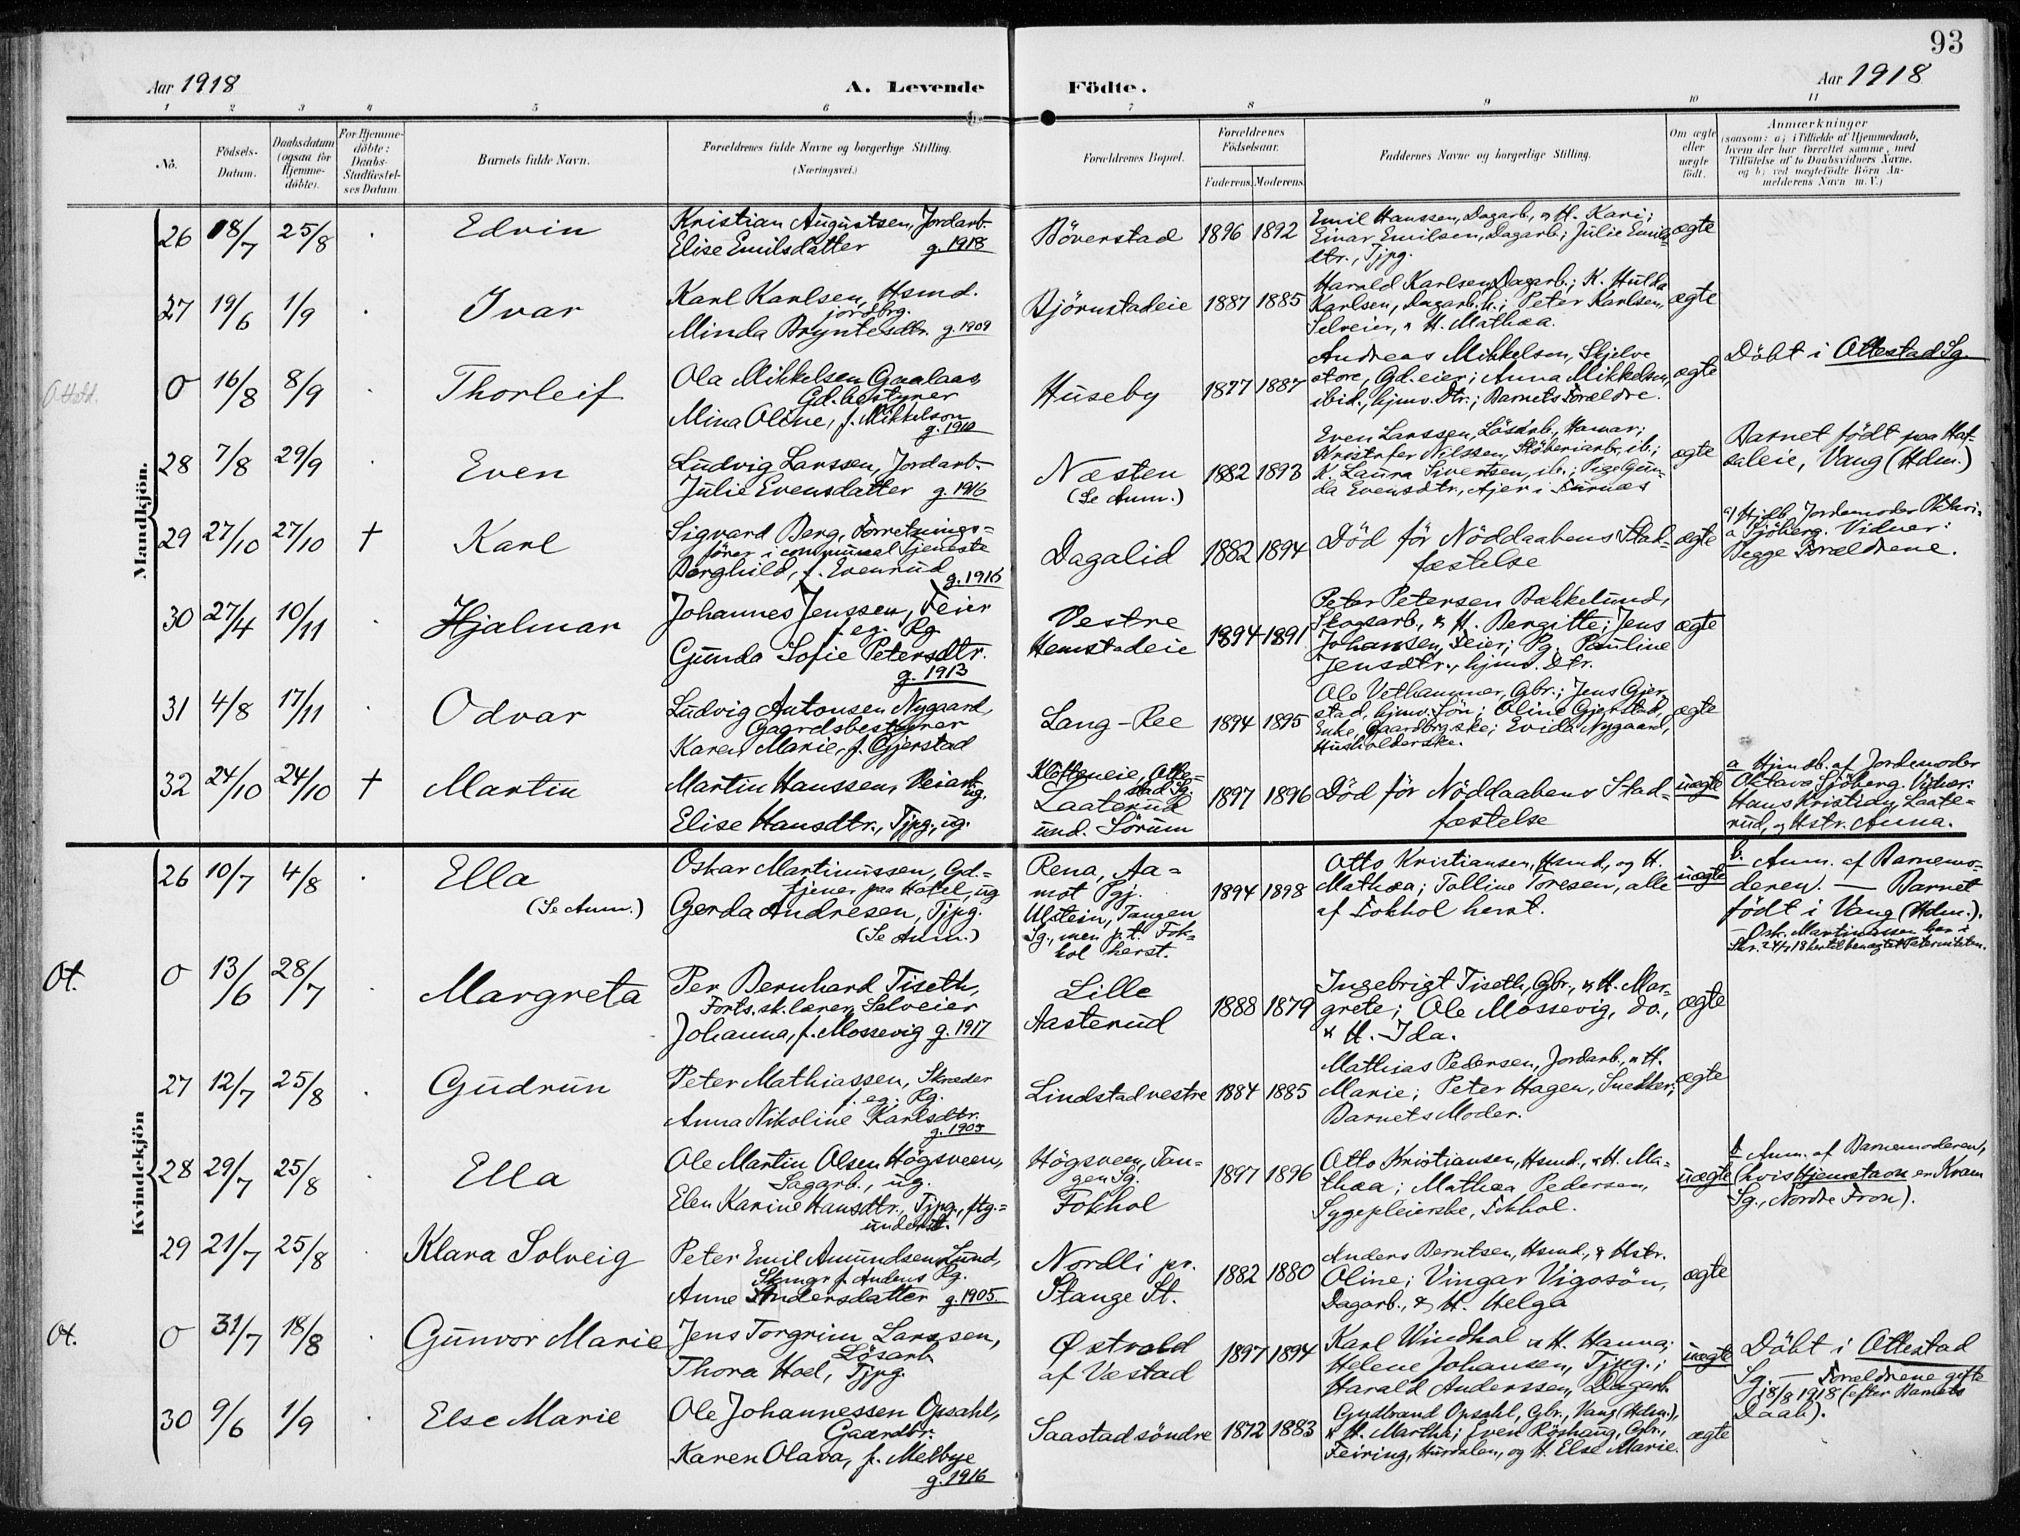 93
Aar 1918
A. Levende
Födte.
Aar 1918
1 2 3 4 5 6 7 8 9 10 11
No.
Födsels-
Datum.
Daabsdatum
(ogsaa for
Hjemme-
döbte).
For Hjemme-
döbte:
Daabs-
Stadfæstel-
ses Datum
Barnets fulde Navn.
Forældrenes fulde Navne og borgerlige Stilling.
(Næringsvei.)
Forældrenes Bopæl.
Forældrenes
Födselsaar.
Faderens. Moderens.
Faddernes Navne og borgerlige Stilling.
Om ægte
eller
uægte
födt.
Anmærkninger
(saasom: a) i Tilfælde af Hjemmedaab,
hvem der har forrettet samme, med
Tilföielse af to Daabsvidners Navne,
og b) ved uægtefödte Börn An-
melderens Navn m. V.)
Mandkjön.
26 18/7 25/8 Edvin
Kristian Augustsen, Jordarb.
Elise Emilsdatter g. 1918
Böverstad 1896 1892
Emil Hanssen, Dagarb., & H. Kari;
Einar Emilsen, Dagarb.; Julie Emils-
dtr., Tjpg.
ægte
27 19/6 1/9 Ivar
Karl Karlsen, Hsmd.
jordbrg.
Minda Bryntesdtr. g. 1909
Björnstadeie 1887 1885
Harald Karlsen, Dagarb.; K. Hulda
Karlsen, Dagarb. h.; Peter Karlsen,
Selveier, & H. Mathea.
ægte
Ottstd.
0 16/8 8/9 Thorleif
Ola Mikkelsen Gaalaas,
Gd.bestyrer
Mina Oline, f. Mikkelson
g. 1910
Huseby 1877 1887
Andreas Mikkelsen, Skjelve
store, Gd.eier; Anna Mikkelsen,
ibid., hjmv. Dtr.; Barnets Forældre.
ægte
Döbt i Ottestad Sg.
28 7/8 29/9 Even
Ludvig Larssen, Jordarb.
Julie Evensdatter g. 1916
Næsten
(Se Anm.)
1882 1893
Even Larssen, Lösarb., Hamar;
Kristofer Nilssen, Stöberiarb., ib.;
K. Laura Sivertsen, ib.; Pige Gun-
da Evensdtr., Ajer i Furnæs
ægte
Barnet födt paa Haf-
saleie, Vang (Hdm.)
29 27/10 27/10 † Karl
Sigvard Berg, Forretnings=
förer i communal Tjeneste
Borghild, f. Evenrud
g. 1916
Dagalid 1882 1894
Död för Nöddaabens Stad-
fæstelse
ægte
a) Hjdb. Jordemoder Oktavi-
a Sjöberg. Vidner:
Begge Forældrene.
30 27/4 10/11 Hjalmar
Johannes Jenssen, Feier
f. eg. Rg.
Gunda Sofie Petersdtr.
g. 1913
Vestre
Hemstadeie
1894 1891
Peter Petersen Bakkelund,
Skogsarb., & H. Bergitte; Jens
Johansen, Feier; Pg. Pauline
Jensdtr., hjmv. Dtr.
ægte
31 4/8 17/11 Odvar
Ludvig Antonsen Nygaard,
Gaardsbestyrer
Karen Marie, f. Gjerstad
Lang-Ree 1894 1895
Ole Vethammer, Gbr.; Jens Gjer-
stad, hjmv. Sön; Oline Gjerstad,
Enke, Gaardbrgske; Evida Nygaard,
Husholderske.
ægte
32 24/10 24/10 † Martin
Martin Hanssen, Veiarb.
ug.
Elise Hansdtr., Tjpg., ug.
Klöfteneie, Otte-
stad Sg.
Laaterud
und. Sörum
1897 1896
Död för Nöddaabens Stad-
fæstelse
uægte
a Hjmdb. af Jordemoder
Oktava Sjöberg. Vidner:
Hans Kristian, Laate-
rud, og Hstr. Anna.
Kvindekjön
26 10/7 4/8 Ella
(Se Anm.)
Oskar Martinussen, Gd.-
tjener paa Hotel, ug
Gerda Andresen, Tjpg.
(Se Anm.)
Rena, Aa-
mot Pgj.
Ulstein, Tangen
Sg., men p.t. Fok-
hol herst.
1894 1898
Otto Kristiansen, Hsmd, og H.
Mathea; Tolline Toresen, alle
af Fokhol herst.
uægte
b. Anm. af Barnemo-
deren. — Barnet
födt i Vang (Hdm.).
— Osk. Martinussen har i
Skr. 24/9 18 hertil benægtet Paterniteten.
Ot.
0 13/6 28/7 Margreta
Per Bernhard Tiseth,
Forts. sk. lærer, Selveier
Johanna, f. Mossevig g. 1917
Lille
Aasterud
1888 1879
Ingebrigt Tiseth, Gbr., & H. Mar-
grete; Ole Mossevig, do.,
& H. Ida.
ægte
27 12/7 25/8 Gudrun
Peter Mathiassen, Skræder
f. eg. Rg.
Anna Nikoline Karlsdtr.
g. 1905
Lindstad vestre 1884 1885
Mathias Pedersen, Jordarb., & H.
Marie; Peter Hagen, Snekker;
Barnets Moder.
ægte
28 29/7 25/8 Ella
Ole Martin Olsen Högsveen,
Sagarb., ug.
Elen Karine Hansdtr., Tjpg., ftg.-
underst.
Högsveen, Tan-
gen Sg.
Fokhol
1897 1896
Otto Kristiansen, Hsmd., & H. Ma-
thea; Mathea Pedersen,
Sygepleierske, Fokhol.
uægte
b Anm. af Barnemoderen,
(hvis Hjemstavn er Kvam
Sg., Nordre Fron).
29 21/7 25/8 Klara Solveig
Peter Emil Amundsen Lund,
Skmgr f. Andens Rg.
Anne Andersdatter g. 1905.
Nordli pr.
Stange St.
1882 1880
Anders Berntsen, Hsmd., & Hstr.
Oline; Vingar Vigosön,
Dagarb., & H. Helga
ægte
Ot.
0 31/7 18/8 Gunvor Marie
Jens Torgrim Larssen,
Lösarb.
Thora Hoel, Tjpg.
Østvold
af Væstad
1897 1894
Karl Windhol & H. Hanna;
Helene Johansen, Tjpg.;
Harald Anderssen, Dagarb.
uægte
Döbt i Ottestad
Sg. — Forældrene gifte
18/8 1918 (efter Barnets
Daab).
30 9/6 1/9 Else Marie
Ole Johannessen Opsahl,
Gaardbr.
Karen Olava, f. Melbye
g. 1916
Saastad söndre 1872 1883
Gudbrand Opsahl, Gbr., Vang (Hdm.),
& H. Martha; Even Röshaug, Gbr.,
Feiring, Hurdalen, og H. Else Marie.
ægte